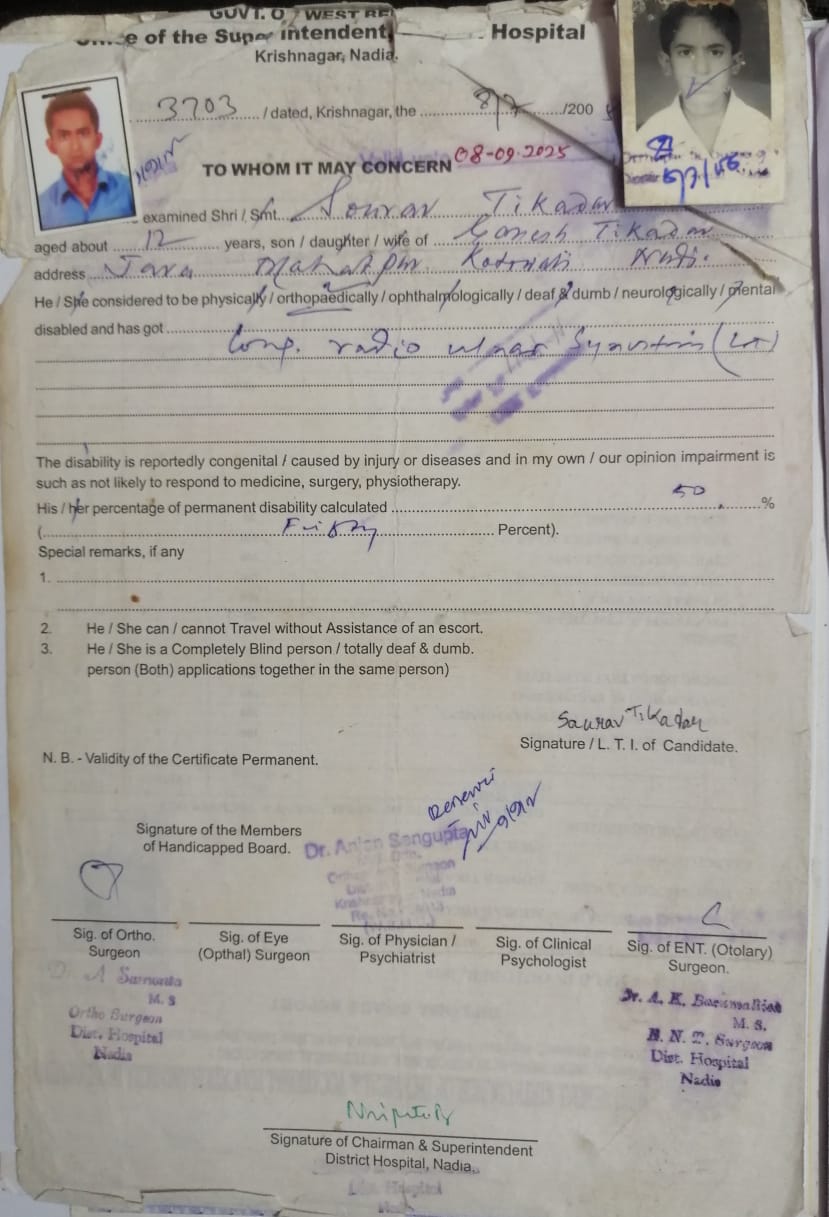 GOVT. O WEST BE
e of the Superintendent, Hospital
Krishnagar, Nadia.
3703 / dated, Krishnagar, the 8/7 /200
08-09-2025
TO WHOM IT MAY CONCERN
examined Shri / Smt. Sourav Tikadar
aged about 12 years, son / daughter / wife of Ganesh Tikadar
address Java Mahatpur Kotowali
He / She considered to be physically / orthopaedically / ophthalmologically / deaf & dumb / neurologically / mental
disabled and has got
Cong. radio ulnar Synostosis (Lt)
The disability is reportedly congenital / caused by injury or diseases and in my own / our opinion impairment is
such as not likely to respond to medicine, surgery, physiotherapy.
His / her percentage of permanent disability calculated 50 %
( Percent).
Special remarks, if any
1.
2. He / She can / cannot Travel without Assistance of an escort.
3. He / She is a Completely Blind person / totally deaf & dumb.
person (Both) applications together in the same person)
Saurav Tikadar
Signature / L. T. I. of Candidate.
N. B. - Validity of the Certificate Permanent.
Signature of the Members
of Handicapped Board.
Dr. Anjan Sengupta
Nadia
Sig. of Ortho.
Surgeon
Sig. of Eye
(Opthal) Surgeon
Sig. of Physician /
Psychiatrist
Sig. of Clinical
Psychologist
Sig. of ENT. (Otolary)
Surgeon.
A Samanta
M. S
Ortho Surgeon
Dist. Hospital
Nadia
Dr. A. K.
M. S.
E. N. T. Surgeon
Dist. Hospital
Nadia
Signature of Chairman & Superintendent
District Hospital, Nadia.